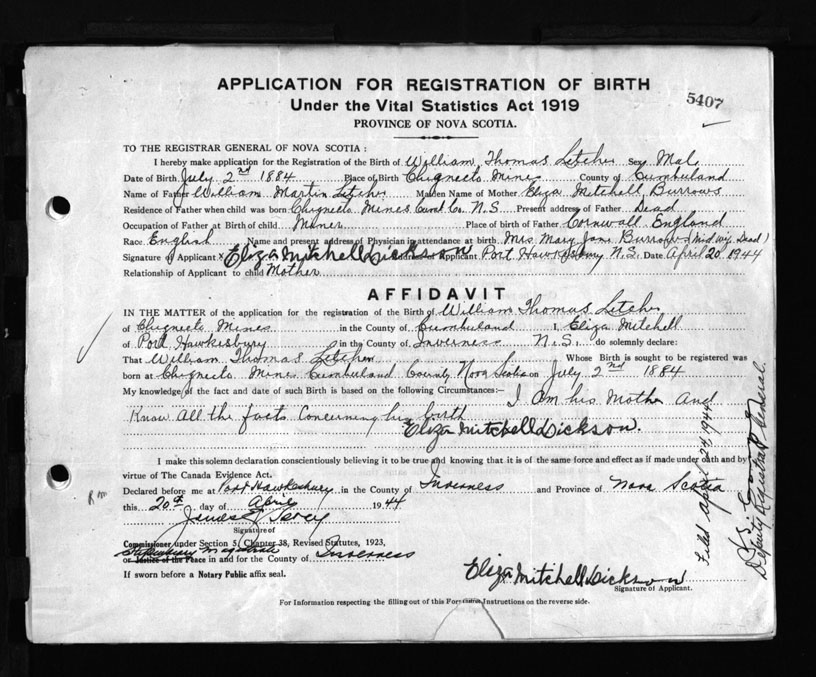 APPLICATION FOR REGISTRATION OF BIRTH
Under the Vital Statistics Act 1919
5407
PROVINCE OF NOVA SCOTIA.
TO THE REGISTRAR GENERAL OF NOVA SCOTIA :
I hereby make application for the Registration of the Birth of William Thomas Letcher Sex Mal
Date of Birth July 2nd 1884 Place of Birth Chignecto Mines County of Cumberland
Name of Father William Martin Letcher Maiden Name of Mother Eliza Mitchell Burrows
Residence of Father when child was born Chignecto Mines Cumb Co. N.S. Present address of Father Dead
Occupation of Father at Birth of child Miner Place of birth of Father Cornwall England
Race English Name and present address of Physician in attendance at birth Mrs Mary Jane Burrows (Midwife Dead)
Signature of Applicant x Eliza Mitchell Dickson Applicant Port Hawkesbury N.S. Date April 20 1944
Relationship of Applicant to child Mother
AFFIDAVIT
IN THE MATTER of the application for the registration of the Birth of William Thomas Letcher
of Chignecto Mines in the County of Cumberland I, Eliza Mitchell
of Port Hawkesbury in the County of Inverness N.S. do solemnly declare:
That William Thomas Letcher Whose Birth is sought to be registered was
born at Chignecto Mines Cumberland County Nova Scotia on July 2nd 1884
My knowledge of the fact and date of such Birth is based on the following Circumstances:— I Am his Mother And
Know All the facts Concerning his birth
Eliza Mitchell Dickson.
I make this solemn declaration conscientiously believing it to be true and knowing that it is of the same force and effect as if made under oath and by
virtue of The Canada Evidence Act.
Declared before me at Port Hawkesbury in the County of Inverness and Province of Nova Scotia
this 20th day of April 1944
James
Signature of
Commissioner under Section 5, Chapter 38, Revised Statutes, 1923,
Stipendiary Magistrate
or Justice of the Peace in and for the County of Inverness
If sworn before a Notary Public affix seal.
Eliza Mitchell Dickson
Signature of Applicant.
For Information respecting the filling out of this Form Instructions on the reverse side.
Filed April 24, 1944
Deputy Registrar General.